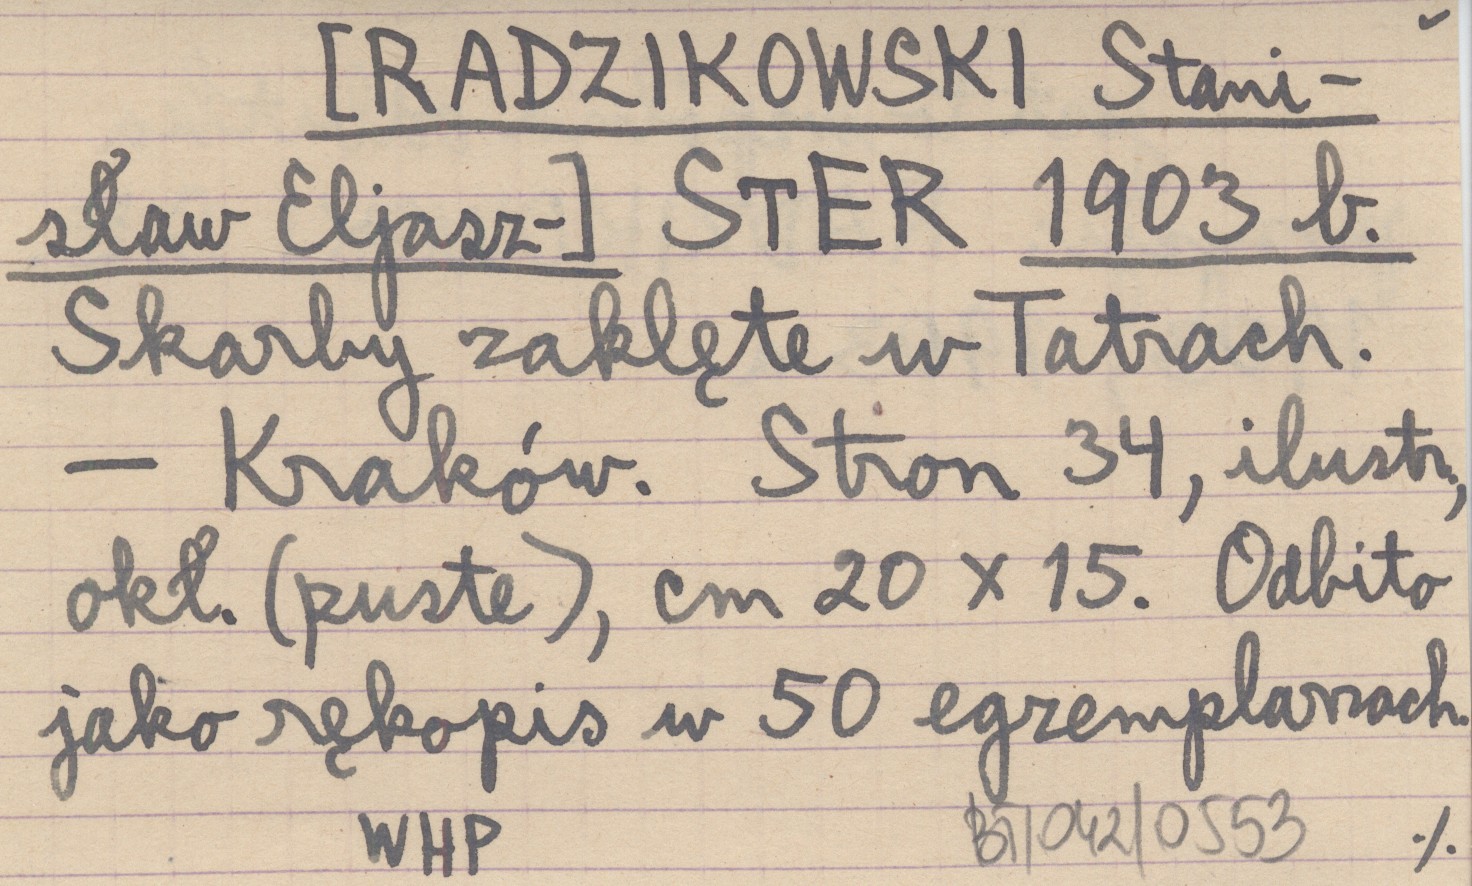 [RADZIKOWSKI Stani-
sław Eljasz-] STER 1903 b.
Skarby zaklęte w Tatrach.
— Kraków. Stron 34, ilustr.,
okł. (puste), cm 20 x 15. Odbito
jako rękopis w 50 egzemplarzach.
WHP BT/042/0553 ./.